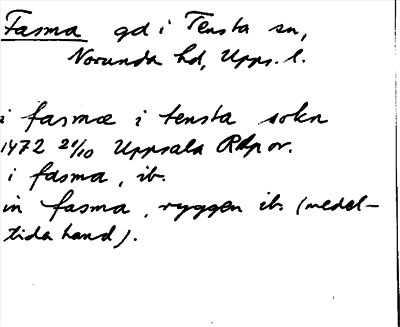 Fasma gd i Tensta sn,
Norunda hd, Upps. l.
i fasmæ i tensta sokn
1472 21/10 Uppsala RApor.
i fasma, ib.
in fasma, ryggen ib. (medel-
tida hand).